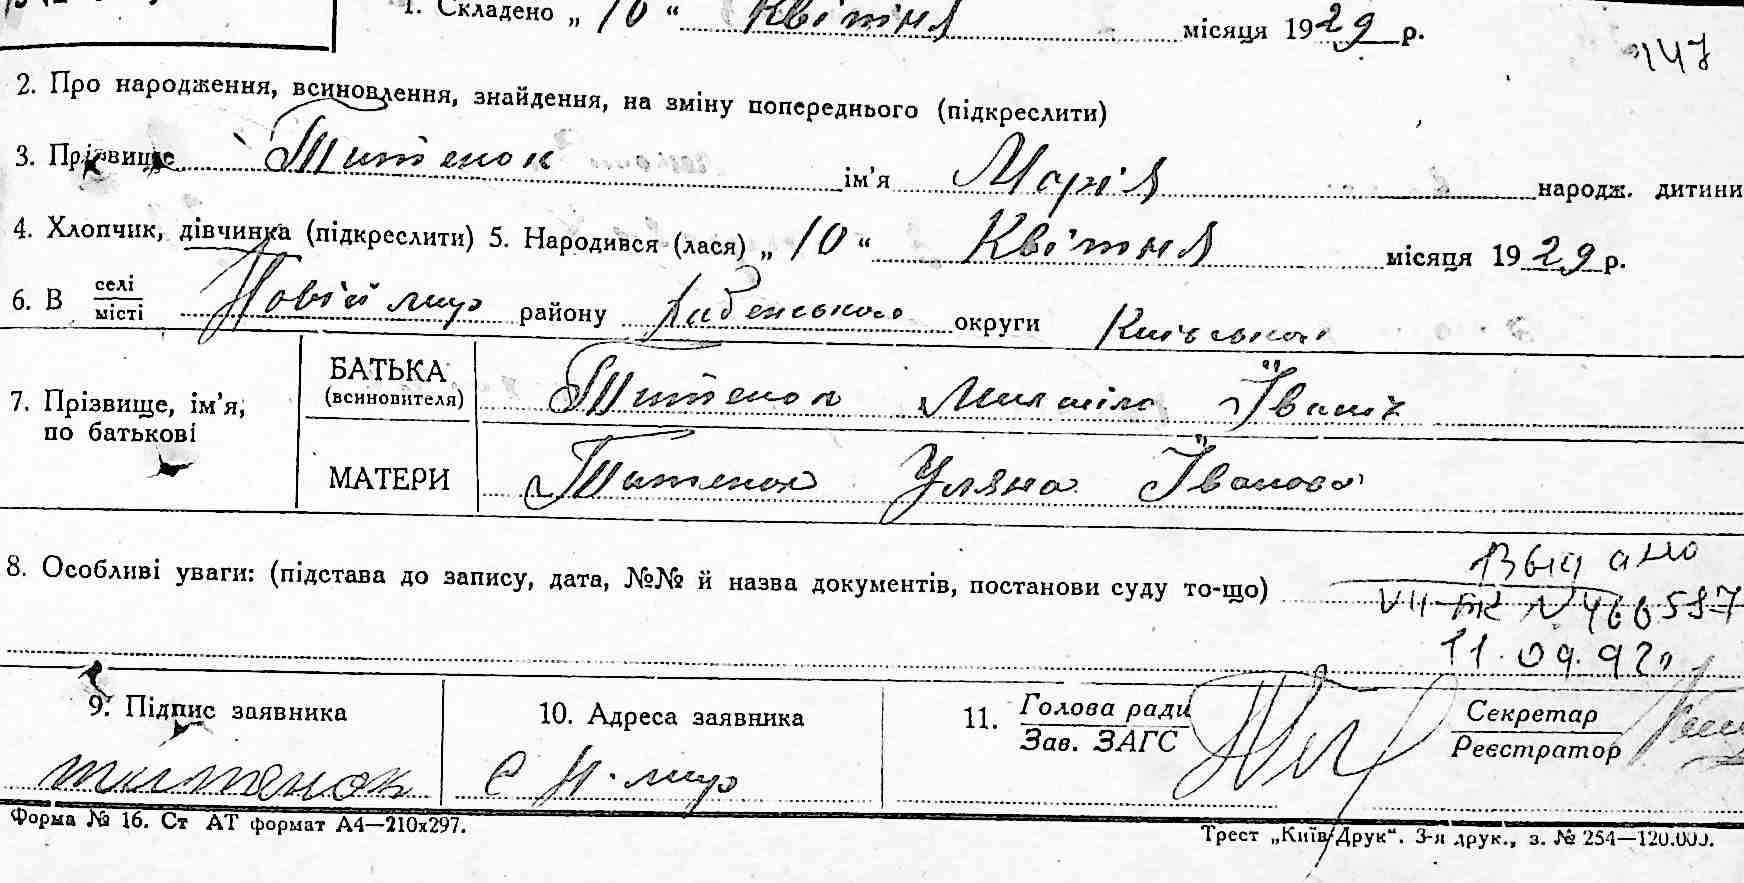 1. Складено „ 10 “ Квітня місяця 1929 р.
147
2. Про народження, всиновлення, знайдення, на зміну попереднього (підкреслити)
3. Прізвище Титенок ім’я Марія народж. дитини
4. Хлопчик, дівчинка (підкреслити) 5. Народився (лася) „ 10 “ Квітня місяця 1929 р.
6. В селі місті Новій мир району округи Київської
7. Прізвище, ім’я, по батькові
БАТЬКА (всиновителя) Титенок Іваніч
МАТЕРИ Титенок Уляна Іванова
8. Особливі уваги: (підстава до запису, дата, №№ й назва документів, постанови суду то-що)
Выдано
VII-БК N 466587
11.09.92г
9. Підпис заявника
титенок
10. Адреса заявника
с Н. мир
11. Голова ради
Зав. ЗАГС
Секретар
Реєстратор
Форма № 16. Ст АТ формат А4—210x297.
Трест „Київ-Друк“. 3-я друк., з. № 254—120.000.